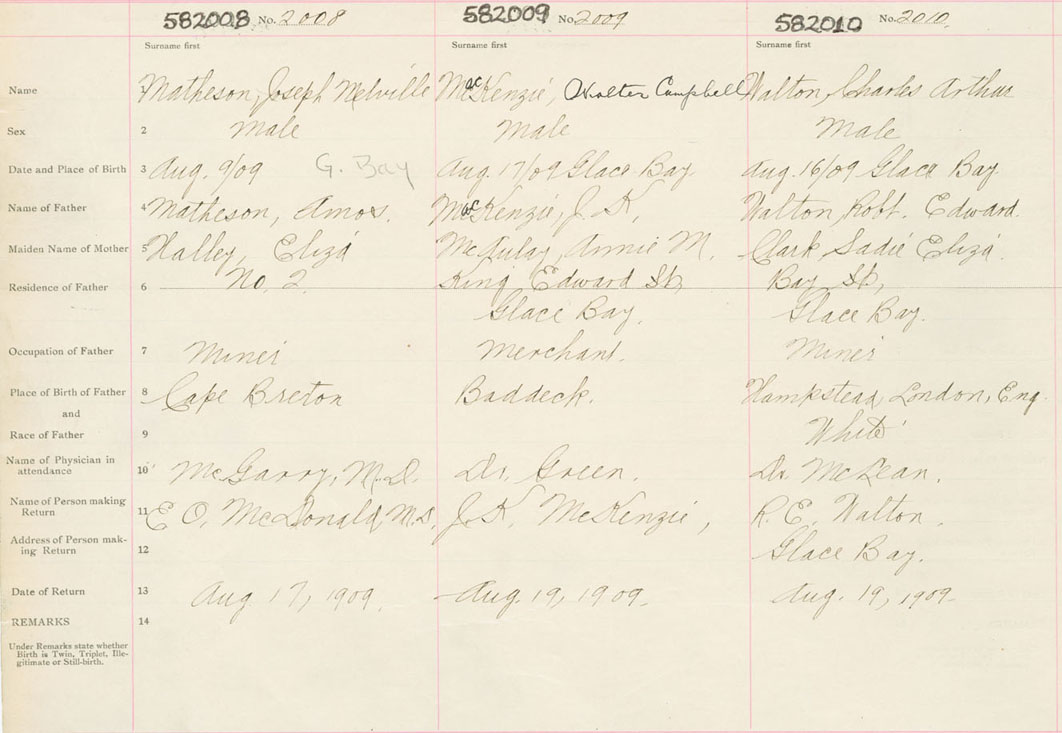 582008 No. 2008 582009 No. 2009 582010 No. 2010
Surname first Surname first Surname first
Name 1 Matheson, Joseph Melville MacKenzie, Walter Campbell Walton, Charles Arthur
Sex 2 Male Male Male
Date and Place of Birth 3 Aug. 9/09 G. Bay Aug. 17/09 Glace Bay. Aug. 16/09 Glace Bay.
Name of Father 4 Matheson, Amos. MacKenzie, J. K. Walton, Robt. Edward.
Maiden Name of Mother 5 Halley, Eliza McAulay, Annie M. Clark Sadie Eliza.
Residence of Father 6 No. 2. King Edward St. Bay St,
Glace Bay. Glace Bay.
Occupation of Father 7 Miner Merchant. Miner
Place of Birth of Father 8 Cape Breton Baddeck. Hampstead, London, Eng.
and
Race of Father 9 White
Name of Physician in
attendance 10 McGarry, M.D. Dr. Green. Dr. McLean.
Name of Person making
Return 11 E. O. McDonald, M.D. J. K. McKenzie, R. E. Walton.
Address of Person mak-
ing Return 12 Glace Bay.
Date of Return 13 Aug 17, 1909. Aug. 19, 1909. Aug. 19, 1909.
REMARKS 14
Under Remarks state whether
Birth is Twin, Triplet, Ille-
gitimate or Still-birth.